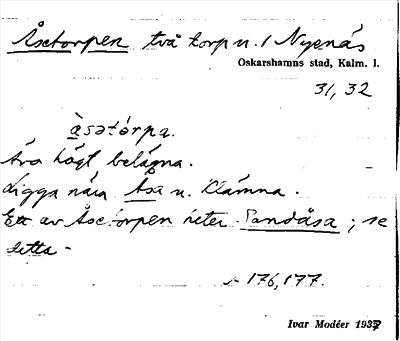 Åsetorpen två torp u. / Nyenäs
Oskarshamns stad, Kalm. l.
31, 32
àsatórpa.
Äro högt belägna.
Ligga nära Åsa u. Klämna.
Ett av Åsetorpen heter Sandåsa; se
detta -
176, 177.
Ivar Modéer 1937